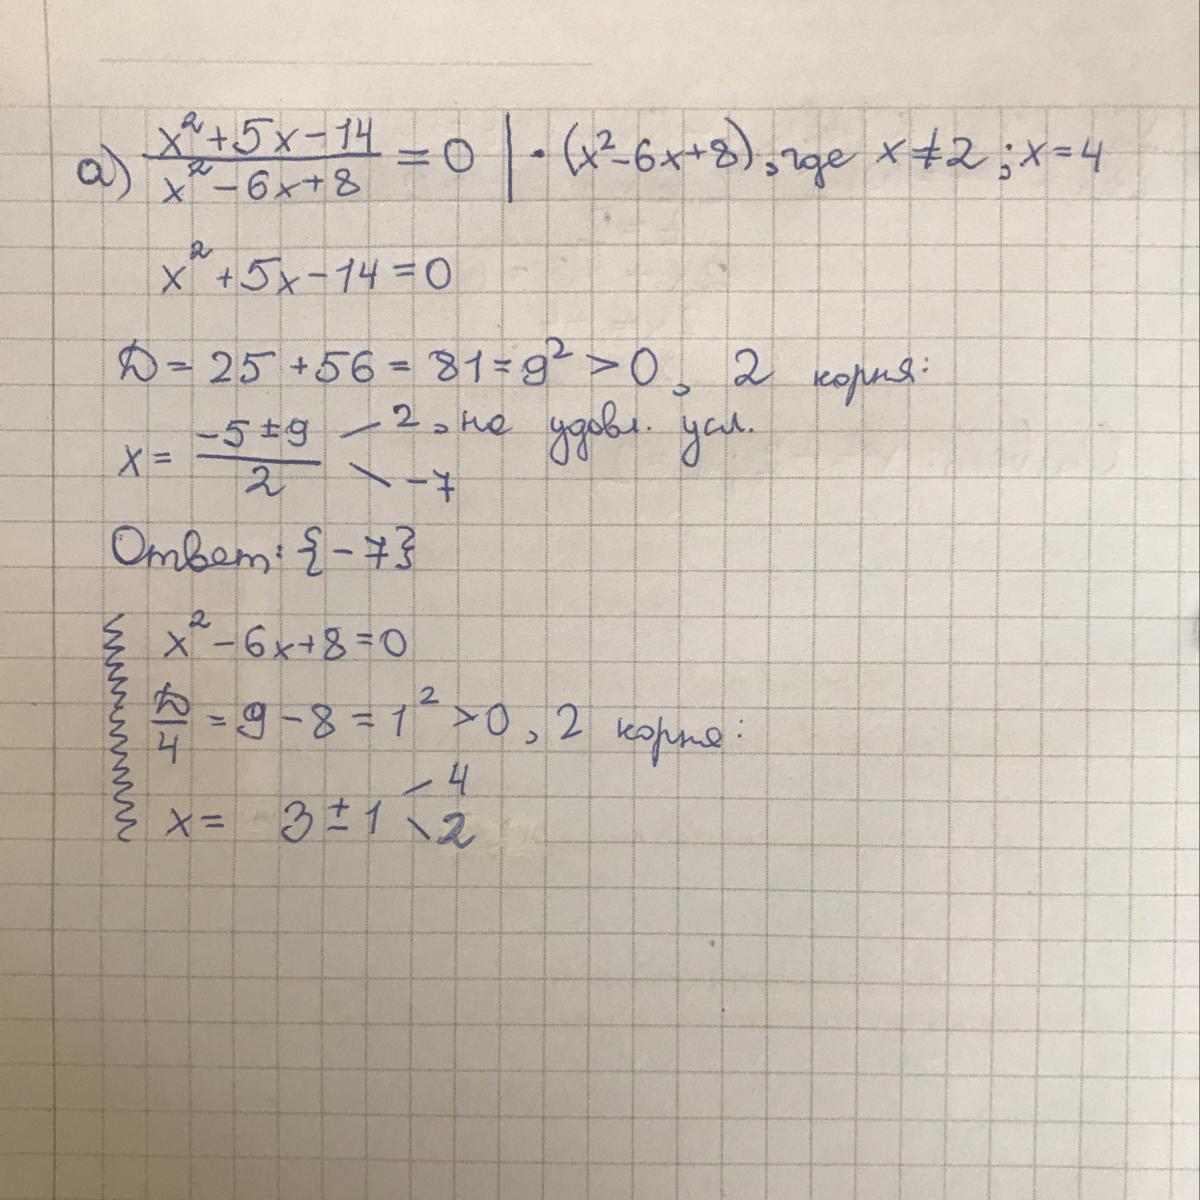 а) x²+5x-14 / x²-6x+8 = 0 | · (x²-6x+8), где x≠2; x=4
x²+5x-14=0
D = 25+56 = 81 = 9² > 0, 2 корня:
x = -5±9 / 2 2, не удовл. усл.
-7
Ответ: {-7}
x²-6x+8=0
D/4 = 9-8 = 1² > 0, 2 корня:
x = 3±1 4
2